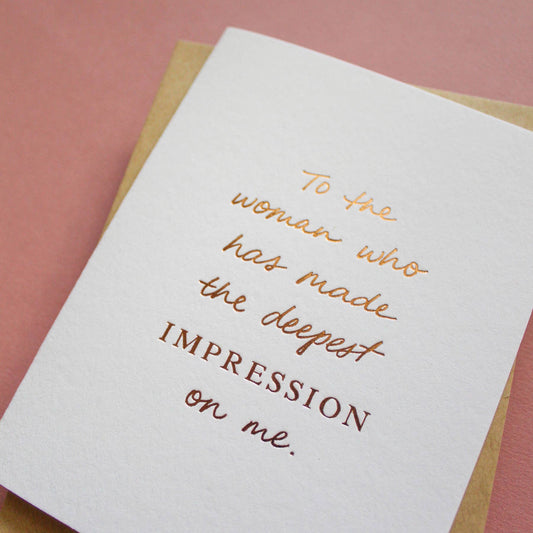 To the
woman who
has made
the deepest
IMPRESSION
on me.